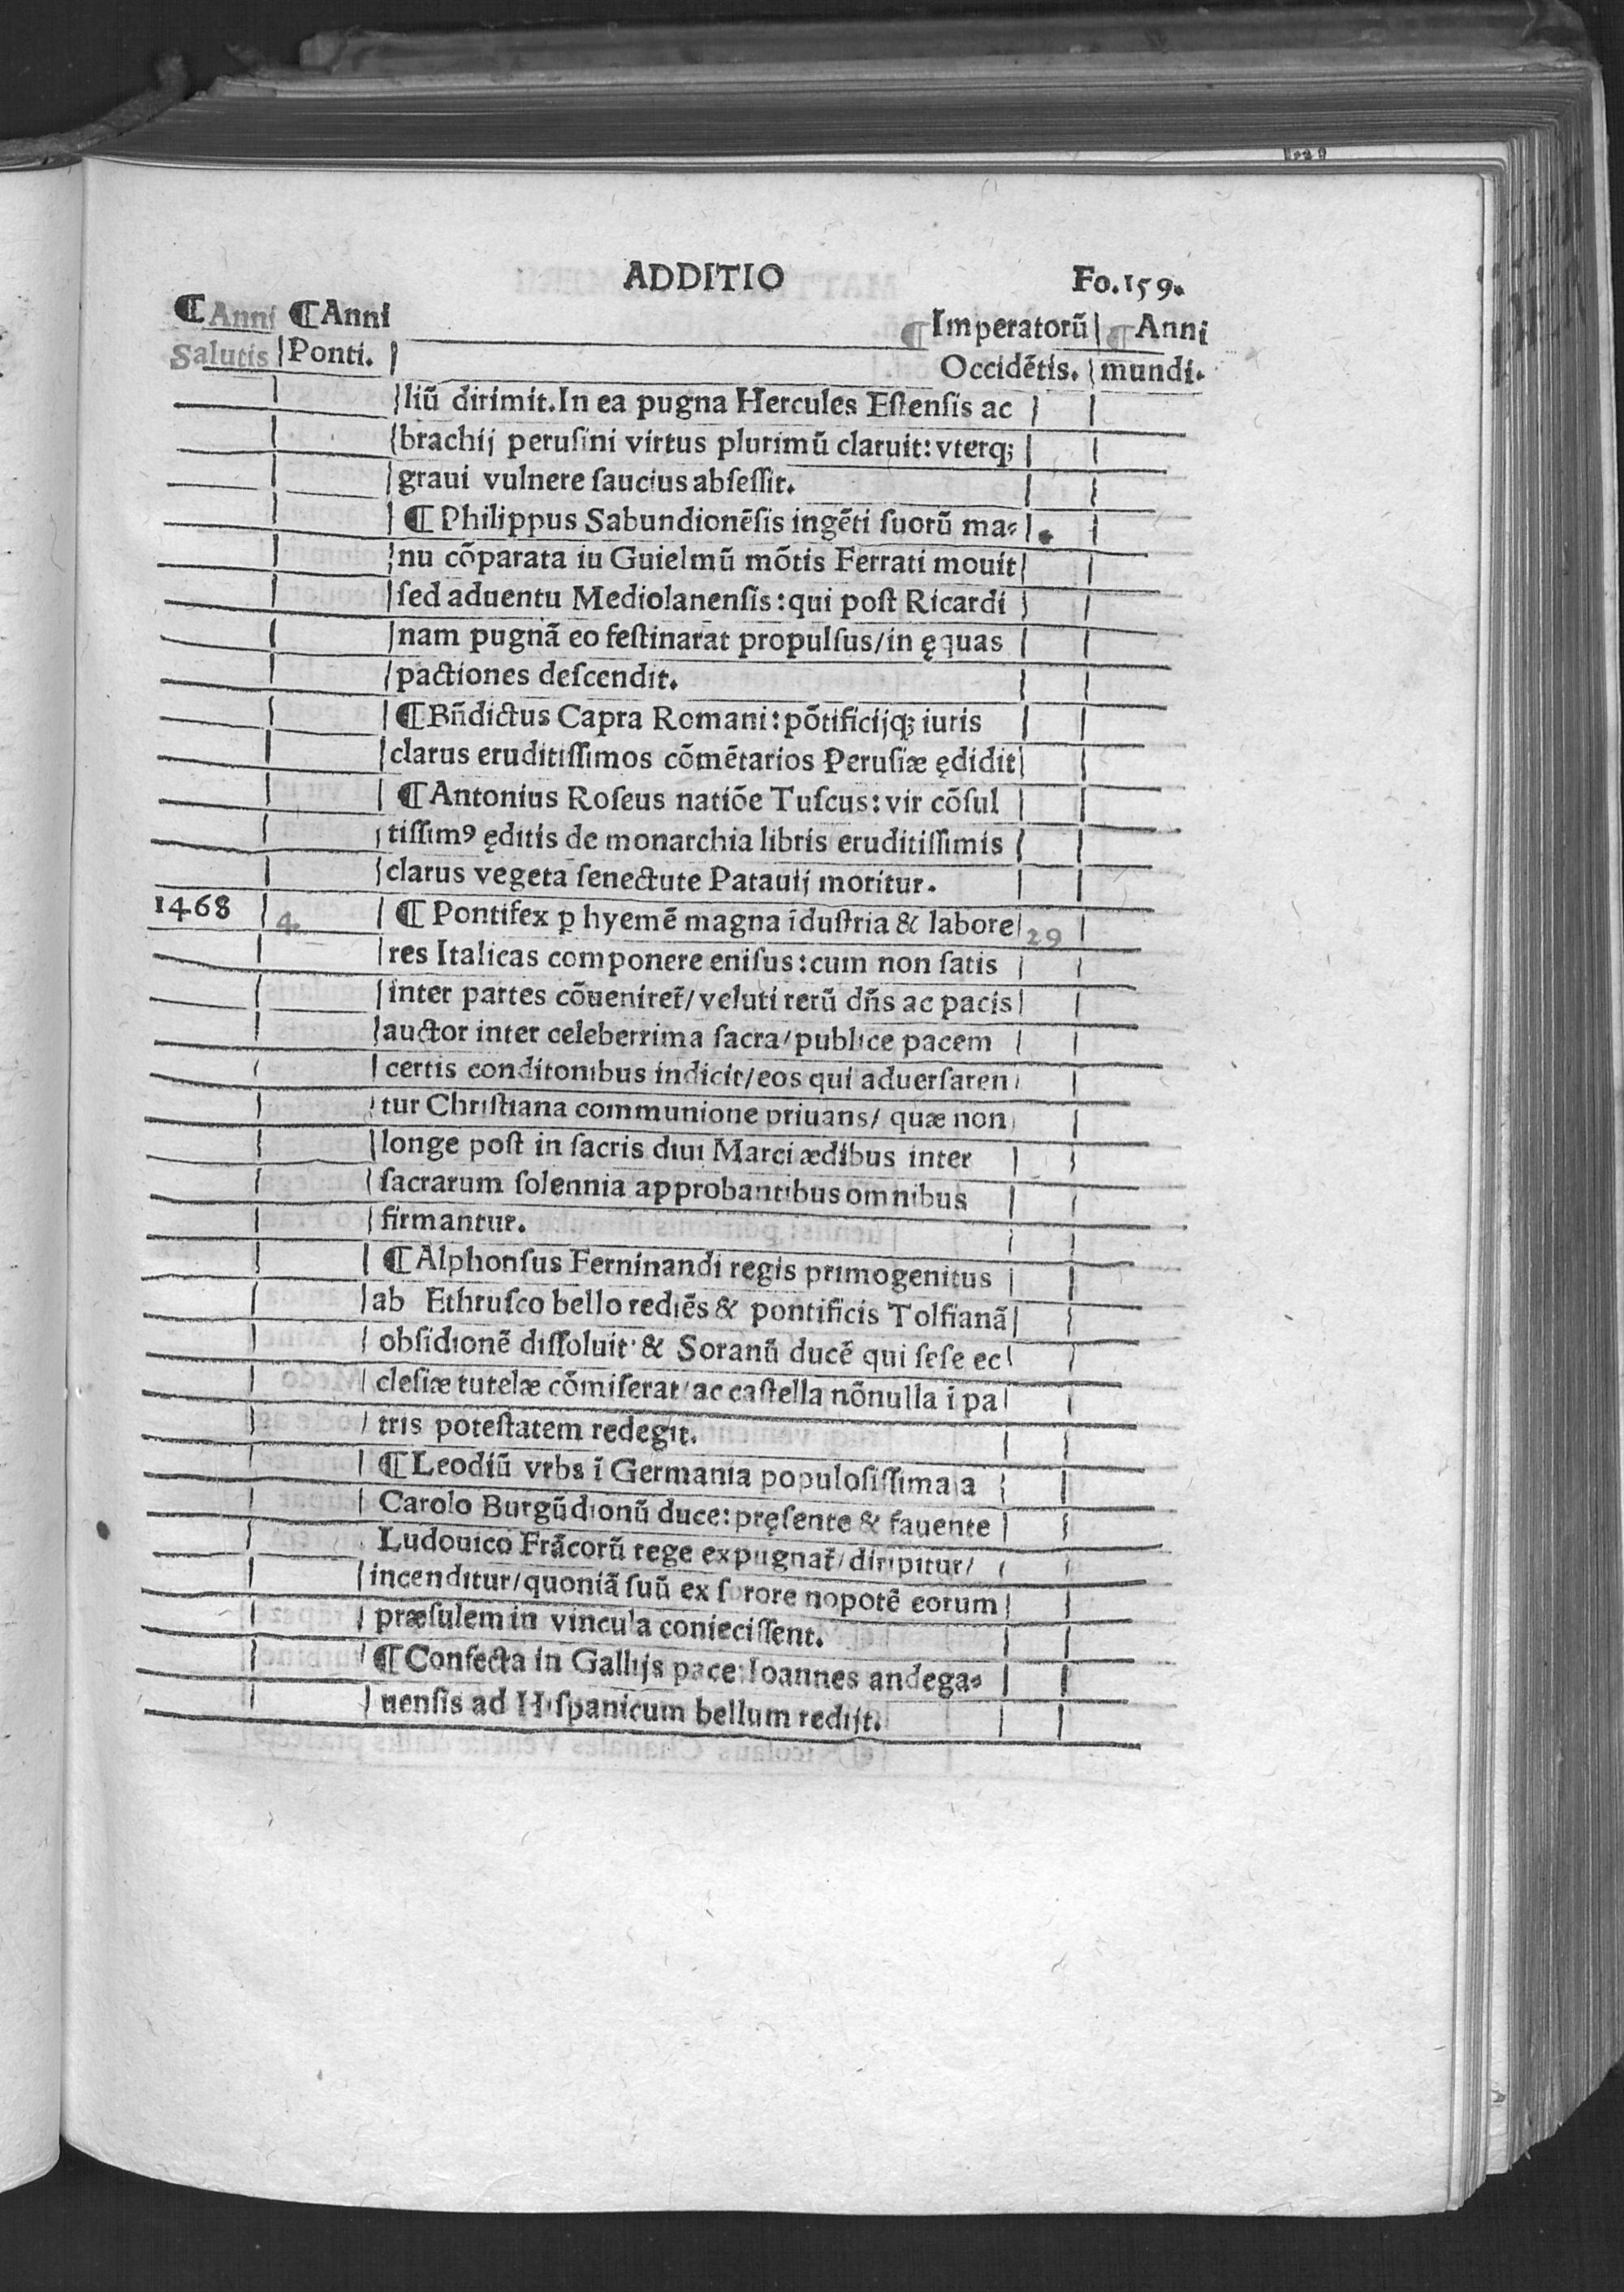 ADDITIO Fo.159.
¶ Anni ¶ Anni ¶ Imperatorũ ¶ Anni
Salutis Ponti. Occidẽtis. mundi.
liũ dirimit.In ea pugna Hercules Eſtenſis ac
brachij peruſini virtus plurimũ claruit: vterqꝫ
graui vulnere ſaucius abſeſſit.
¶ Philippus Sabundionẽſis ingẽti ſuorũ ma⸗
nu cõparata iu Guielmũ mõtis Ferrati mouit
ſed aduentu Mediolanenſis: qui poſt Ricardi
nam pugnã eo feſtinarat propulſus/in ęquas
pactiones deſcendit.
¶ Bñdictus Capra Romani: põtificijqꝫ iuris
clarus eruditiſſimos cõmẽtarios Peruſiæ ędidit
¶ Antonius Roſeus natiõe Tuſcus: vir cõſul
tiſſimꝰ ęditis de monarchia libris eruditiſſimis
clarus vegeta ſenectute Patauij moritur.
1468 4. ¶ Pontifex ꝑ hyemẽ magna ĩduſtria & labore 29
res Italicas componere eniſus: cum non ſatis
inter partes cõueniret̃/ veluti rerũ dñs ac pacis
auctor inter celeberrima ſacra/ publice pacem
certis conditonibus indicit/eos qui aduerſaren
tur Chriſtiana communione priuans/ quæ non
longe poſt in ſacris diui Marci ædibus inter
ſacrarum ſolennia approbantibus omnibus
firmantur.
¶ Alphonſus Ferninandi regis primogenitus
ab Ethruſco bello rediẽs & pontificis Tolfianã
obſidionẽ diſſoluit & Soranũ ducẽ qui ſeſe ec
cleſiæ tutelæ cõmiſerat/ ac caſtella nõnulla ĩ pa
tris poteſtatem redegit.
¶ Leodiũ vrbs ĩ Germania populoſiſſima a
Carolo Burgũdionũ duce: pręſente & fauente
Ludouico Frãcorũ rege expugnat̃/ diripitur/
incenditur/quoniã ſuũ ex ſorore nopotẽ eorum
præſulem in vincula conieciſſent.
¶ Confecta in Gallijs pace: Ioannes andega⸗
uenſis ad Hiſpanicum bellum redijt.